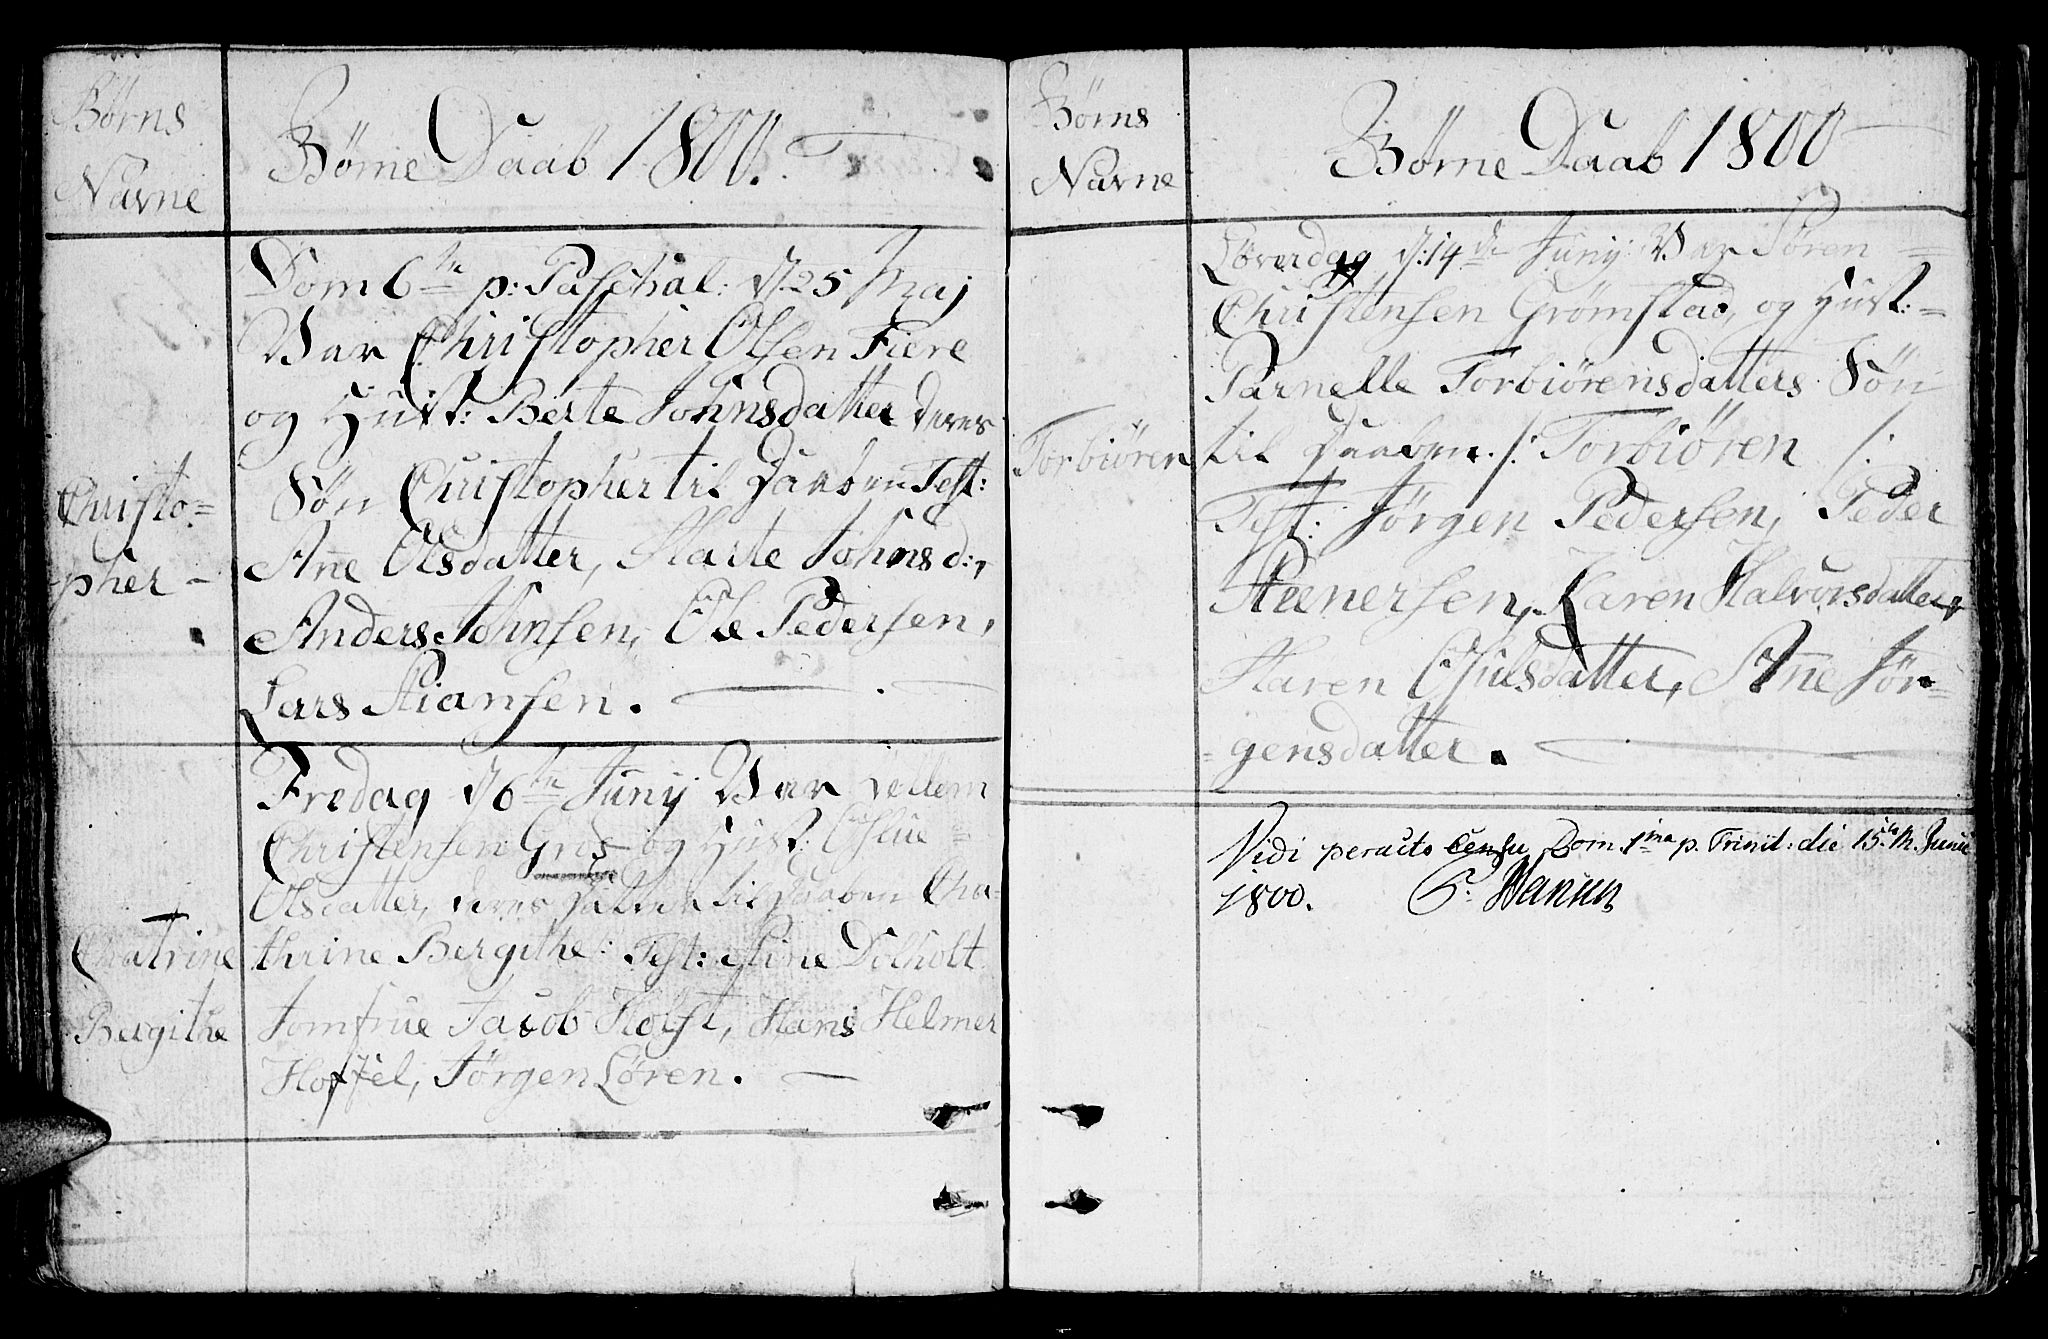 Børns
Navne
Børne Daab 1800.
Dom 6te p: Paschal: d. 25 Maj
Var Christopher Olsen Fiere
og Hust: Berte Johnsdatter deres
Søn Christopher til Daaben Test:
Christo=
pher -
Ane Olsdatter, Marte Johnsd:,
Anders Johnsen, Ole Pedersen,
Lars Stiansen.
Fredag d. 6te Junij Var Vellem
Christensen Gros og Hust:
Olsdatter, deres Datter til Daaben Cha=
Chatrine
Bergithe
thrine Bergithe: Test: Stine Dolholt
Jomfrue Jacob Holst, Hans Helmer
Hoffel, Jørgen Løren.
Børns
Navne
Børne Daab 1800
Løverdag d. 14de Junij Var Søren
Christensen Grømstad, og Hust:=
Parnelle Torbiørensdatters Søn
Torbiøren
til Daaben /: Torbiøren /:
Test: Jørgen Pedersen, Peder
Steenersen, Karen Halvorsdatter,
Maren datter, Ane Jør=
=gensdatter.
Vidi peracto censu Dom 1ma p. Trinit: die 15 M. Junii
1800. Hansen